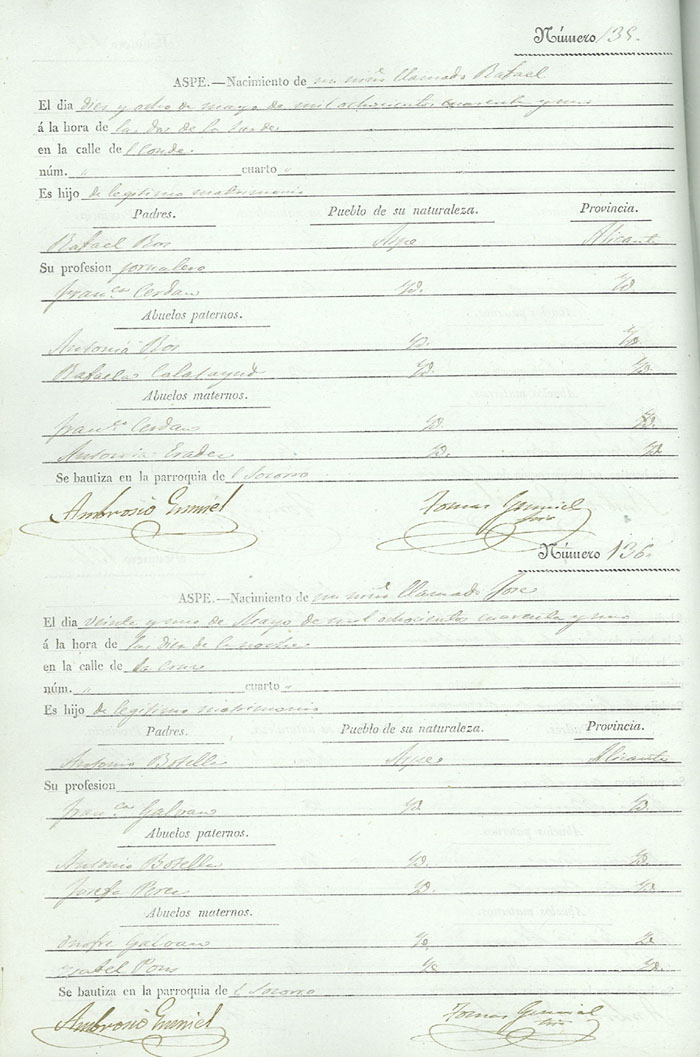 Número 135.
ASPE.—Nacimiento de un niño llamado Rafael
El dia diez y ocho de mayo de mil ochocientos cuarenta y uno
á la hora de las dos de la tarde
en la calle de l Conde.
núm. " cuarto "
Es hijo de legitimo matrimonio
Padres. Pueblo de su naturaleza. Provincia.
Rafael Bos Aspe Alicante
Su profesion jornalero
Fran.ca Cerdan Yd. Yd.
Abuelos paternos.
Antonio Bos Yd. Yd.
Rafaela Calatayud Yd. Yd.
Abuelos maternos.
Fran.co Cerdan Yd. Yd.
Antonia Yd. Yd.
Se bautiza en la parroquia de l Socorro
Ambrosio Tomas
Número 136.
ASPE.—Nacimiento de un niño llamado Jose
El dia veinte y uno de Mayo de mil ochocientos cuarenta y uno
á la hora de las diez de la noche
en la calle de la Cruz
núm. " cuarto "
Es hijo de legitimo matrimonio
Padres. Pueblo de su naturaleza. Provincia.
Antonio Botella Aspe Alicante
Su profesion
Fran.ca Galvan Yd. Yd.
Abuelos paternos.
Antonio Botella Yd. Yd.
Josefa Perez Yd. Yd.
Abuelos maternos.
Onofre Galvan Yd. Yd.
Ysabel Pons Yd. Yd.
Se bautiza en la parroquia de l Socorro
Ambrosio Tomas